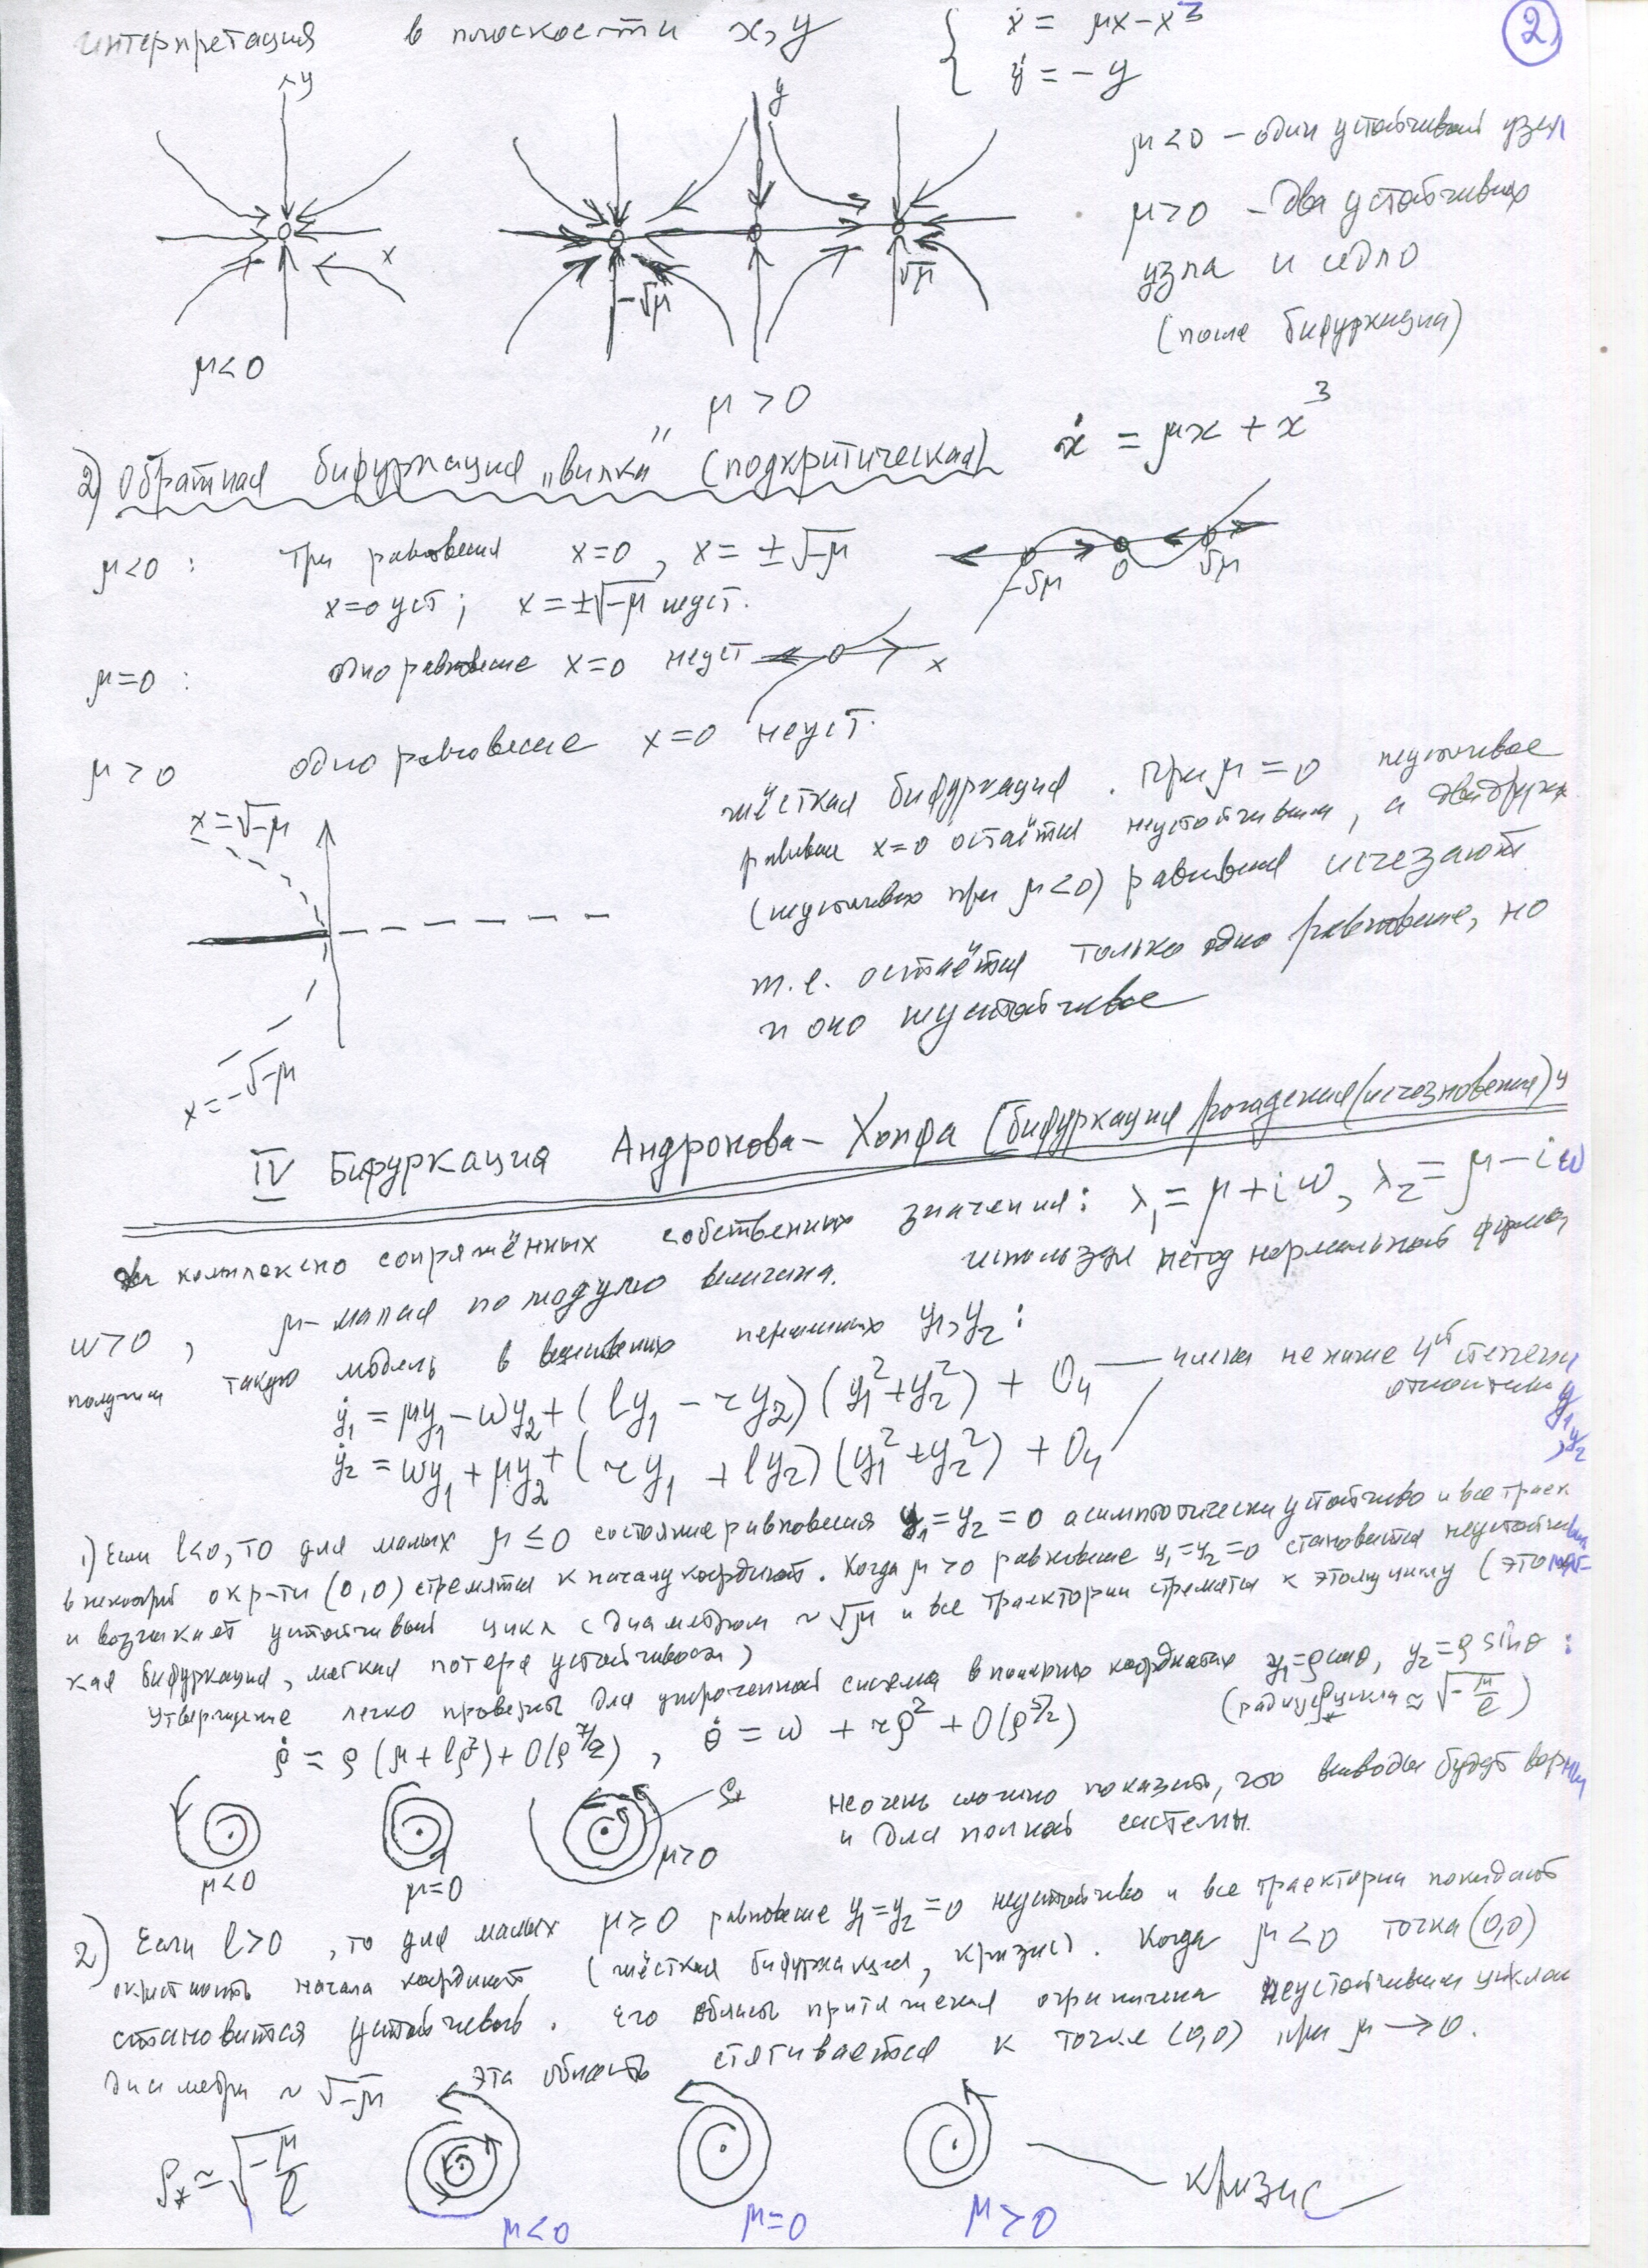 интерпретация в плоскости x,y { ẋ = μx - x³
ẏ = - y
2
y
y
x
-√μ
√μ
μ<0
μ > 0
μ<0 - один устойчивый узел
μ>0 - два устойчивых
узла и седло
(после бифуркации)
2) Обратная бифуркация „вилка” (подкритическая) ẋ = μx + x³
μ<0 : три равновесия x=0 , x = ±√-μ
x=0 уст ; x=±√-μ неуст.
-√μ 0 √μ
μ=0 : одно равновесие x=0 неуст
x
μ > 0 одно равновесие x=0 неуст.
x=√-μ
x=-√-μ
жёсткая бифуркация . При μ=0 неустойчивое
равновесие x=0 остаётся неустойчивым, а два других
(неустойчивых при μ<0) равновесия исчезают
т.е. остаётся только одно равновесие, но
и оно неустойчивое
IV Бифуркация Андронова-Хопфа (бифуркация рождения(исчезновения) ц
Два комплексно сопряжённых собственных значения: λ₁=μ+iω, λ₂=μ-iω
ω>0 , μ- малая по модулю величина. используя метод нормальной формы
получим такую модель в вещественных переменных y₁,y₂ :
ẏ₁ = μy₁-ωy₂+(ly₁ - ry₂)(y₁²+y₂²) + O₄ — члены не ниже 4ой степени
относительно y₁,y₂
ẏ₂ = ωy₁+μy₂+(ry₁ + ly₂)(y₁²+y₂²) + O₄
1) Если l<0, то для малых μ ≤ 0 состояние равновесия y₁=y₂=0 асимптотически устойчиво и все траек
в некоторой окр-ти (0,0) стремятся к началу координат. Когда μ>0 равновесие y₁=y₂=0 становится неустойчивым
и возникает устойчивый цикл с диаметром ~√μ и все траектории стремятся к этому циклу (это мяг-
кая бифуркация, мягкая потеря устойчивости)
Утверждение легко проверить для укороченной системы в полярных координатах y₁=ρcosθ, y₂=ρsinθ :
(радиус цикла ρ* ≃ √-μ/l)
ρ̇ = ρ(μ+lρ²)+O(ρ^7/2) , θ̇ = ω + rρ² + O(ρ^5/2)
ρ*
μ<0
μ=0
μ>0
не очень сложно показать, что выводы будут верны
и для полной системы.
2) Если l>0 , то для малых μ≥0 равновесие y₁=y₂=0 неустойчиво и все траектории покидают
окрестность начала координат (жёсткая бифуркация, кризис). Когда μ<0 точка(0,0)
становится устойчивой. Его область притяжения ограничена неустойчивым циклом
диаметра ~√-μ Эта область стягивается к точке (0,0) при μ→0.
ρ* ≃ √-μ/l
μ<0
μ=0
μ>0
кризис